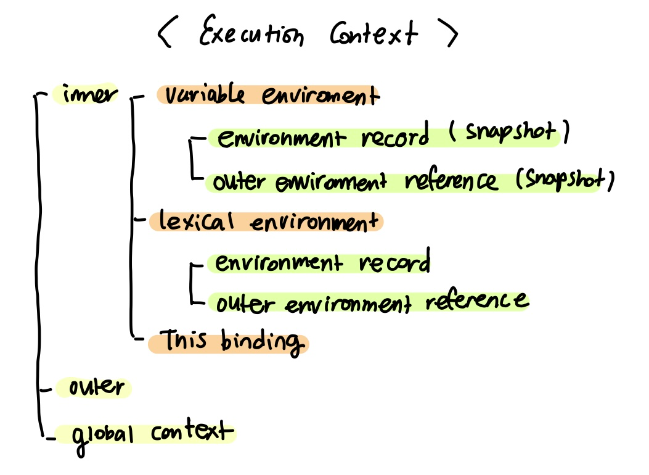 < Execution Context >
inner
variable enviroment
environment record (snapshot)
outer enviroment reference (snapshot)
lexical environment
environment record
outer environment reference
This binding
outer
global context